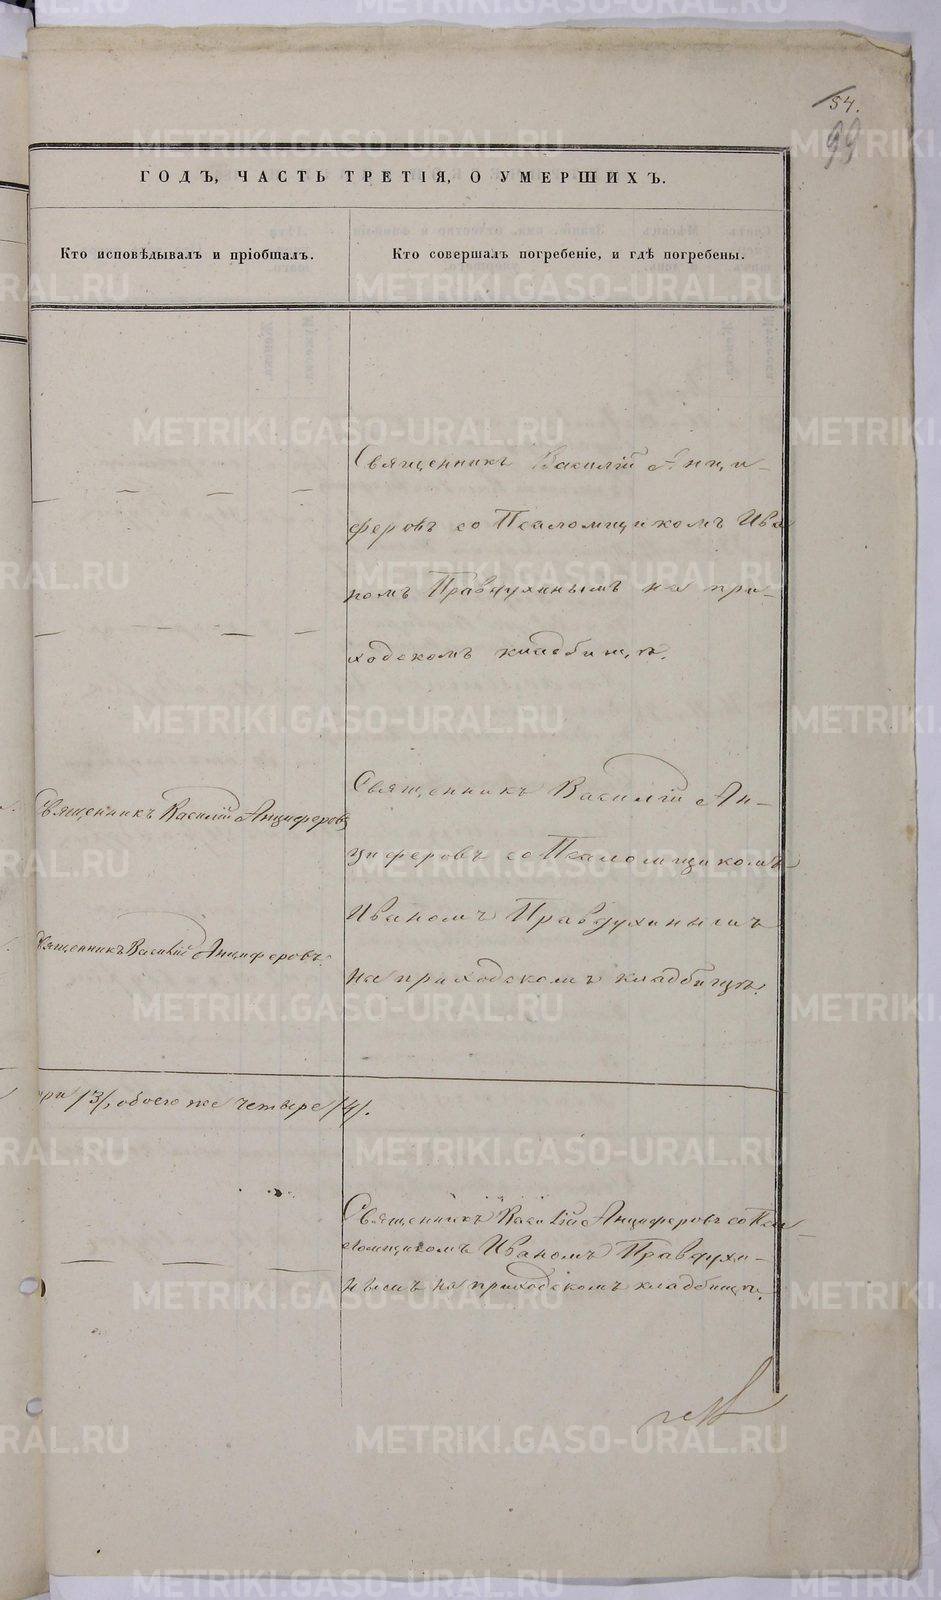 54.
99
ГОДЪ, ЧАСТЬ ТРЕТІЯ, О УМЕРШИХЪ.
Кто исповѣдывалъ и пріобщалъ.
Кто совершалъ погребеніе, и гдѣ погребены.
Священникъ Василій Анци-
феровъ со Псаломщикомъ Ива
номъ Правдухинымъ на при-
ходскомъ кладбищѣ.
Священникъ Василій Анциферовъ
Священникъ Василій Ан-
циферовъ со Псаломщикомъ
Иваномъ Правдухинымъ
на приходскомъ кладбищѣ.
Священникъ Василій Анциферовъ.
три /3/, обоего же четыре /4/.
Священникъ Василій Анциферовъ со Пса-
ломщикомъ Иваномъ Правдухи-
нымъ на приходскомъ кладбищѣ.
METRIKI.GASO-URAL.RU